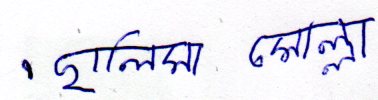 হালিমা মোল্লা